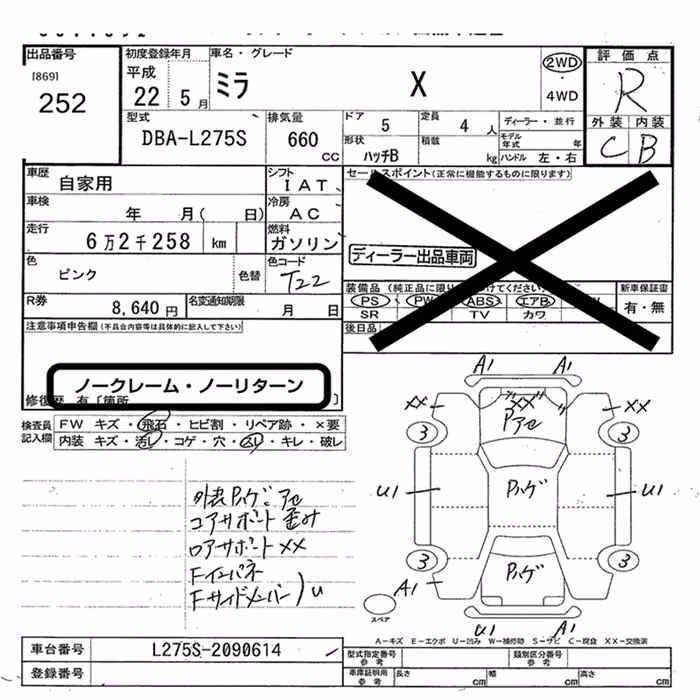 出品番号
[869]
252
初度登録年月
平成
22 5月
車名・グレード
ミラ X
2WD
・
4WD
評価点
R
外装 内装
C B
型式
DBA-L275S
排気量
660
CC
ドア 5
定員 4 人
ディーラー・並行
形状 ハッチB
積載 kg
モデル年式 年
ハンドル 左・右
車歴
自家用
シフト
IAT
セールスポイント(正常に機能するものに限ります)
車検
年 月( 日)
冷房
AC
走行
6万2千258 km
燃料
ガソリン
ディーラー出品車両
色
ピンク
色替
色コード
T22
装備品(純正品に限り
てください)
新車保証書
PS PW ABS エアB W
SR TV カワ
有・無
後日品
R券
8,640円
名変通知期限
月 日
注意事項申告欄(不具合内容等は具体的に記入して下さい)
ノークレーム・ノーリターン
修復歴 有〔箇所 〕
検査員記入欄
FW キズ・飛石・ヒビ割・リペア跡・×要
内装 キズ・汚レ・コゲ・穴・スレ・キレ・破レ
外装Pハゲ アセ
コアサポート 歪み
ロアサポート ××
Fインパネ
Fサイドメンバー)U
A1 A1
×× ×× ××
Pアセ
3 3
U1 Pハゲ U1
3 3
Pハゲ
A1
U1 A1
スペア
A-キズ E-エクボ U-凹み W-補修跡 S-サビ C-腐食 XX-交換済
車台番号
L275S-2090614
登録番号
型式指定番号
参考
類別区分番号
参考
車庫証明用
参考
長さ cm
幅 cm
高さ cm